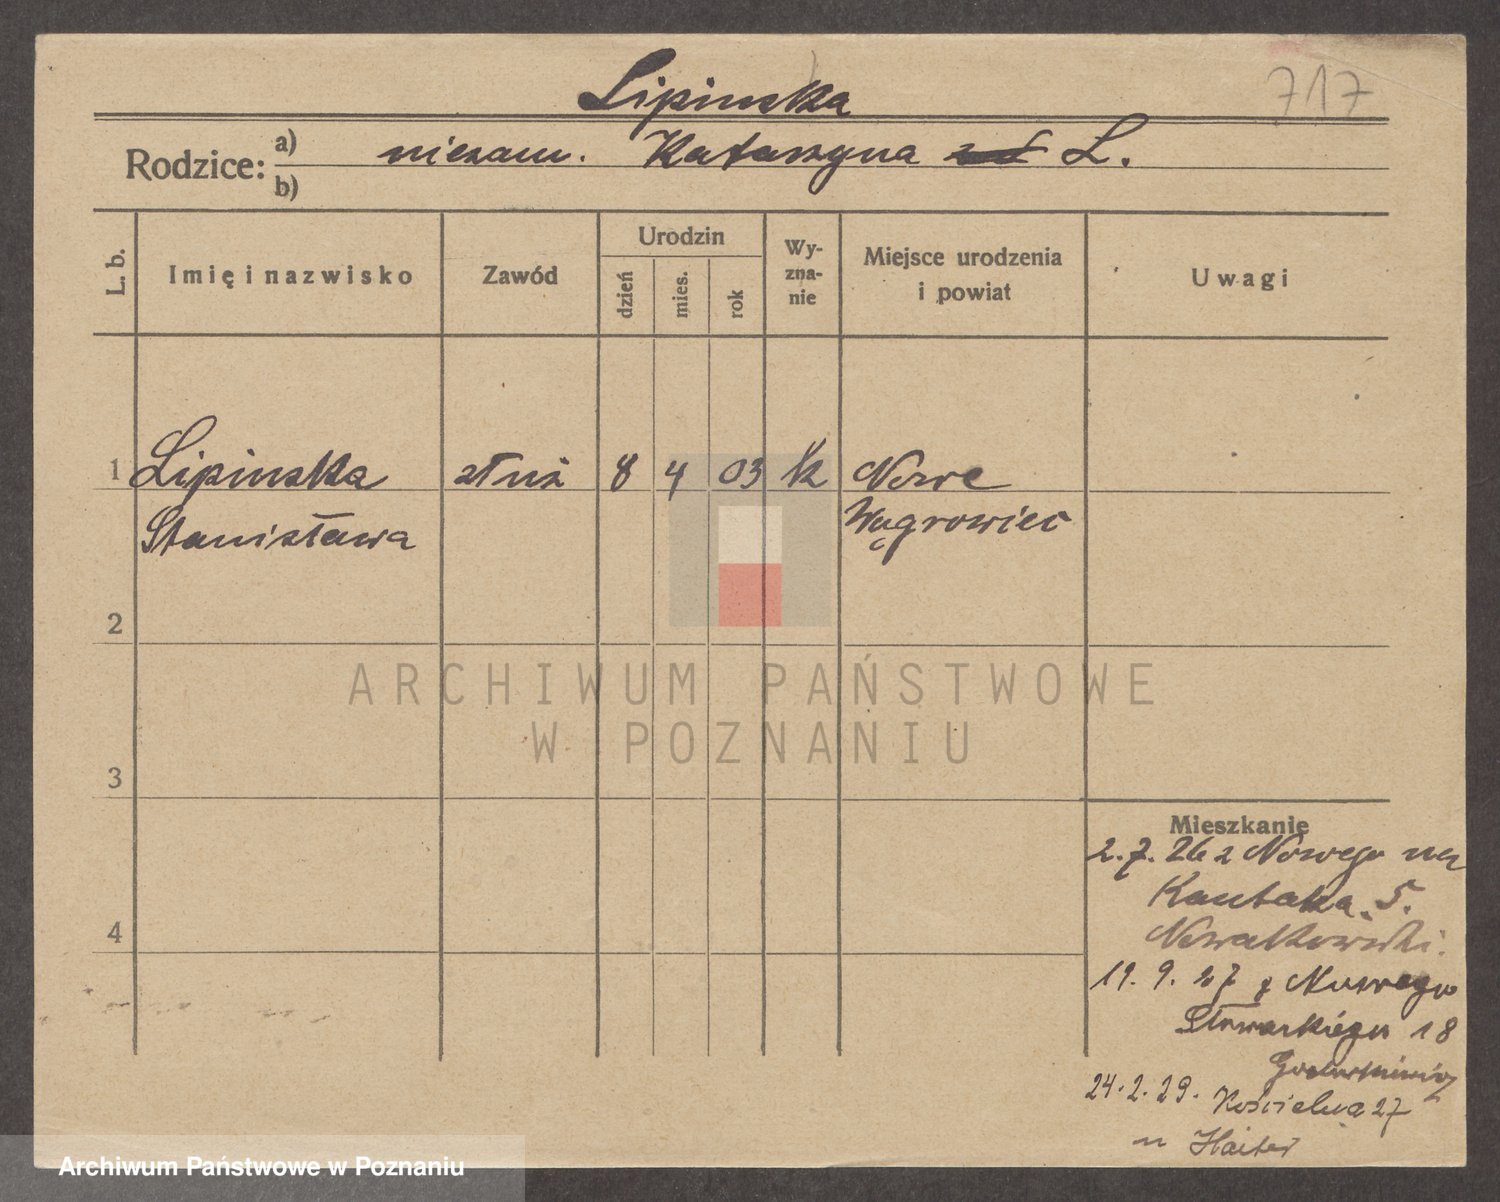 717
Lipinska
Rodzice: a) niezam. Katarzyna L.
b)
L. b.
Imię i nazwisko
Zawód
Urodzin
dzień
mies.
rok
Wy-
zna-
nie
Miejsce urodzenia
i powiat
Uwagi
1 Lipinska służ 8 4 03 k Nowe
Stanisława Wągrowiec
2
3
4
ARCHIWUM PAŃSTWOWE
W POZNANIU
Mieszkanie
2.7.26 z Nowego na
Kantaka 5.
Nowakowski.
19. 9. 27 z Nowego
Słowackiego 18
24.2.29. Kościelna 27
Archiwum Państwowe w Poznaniu